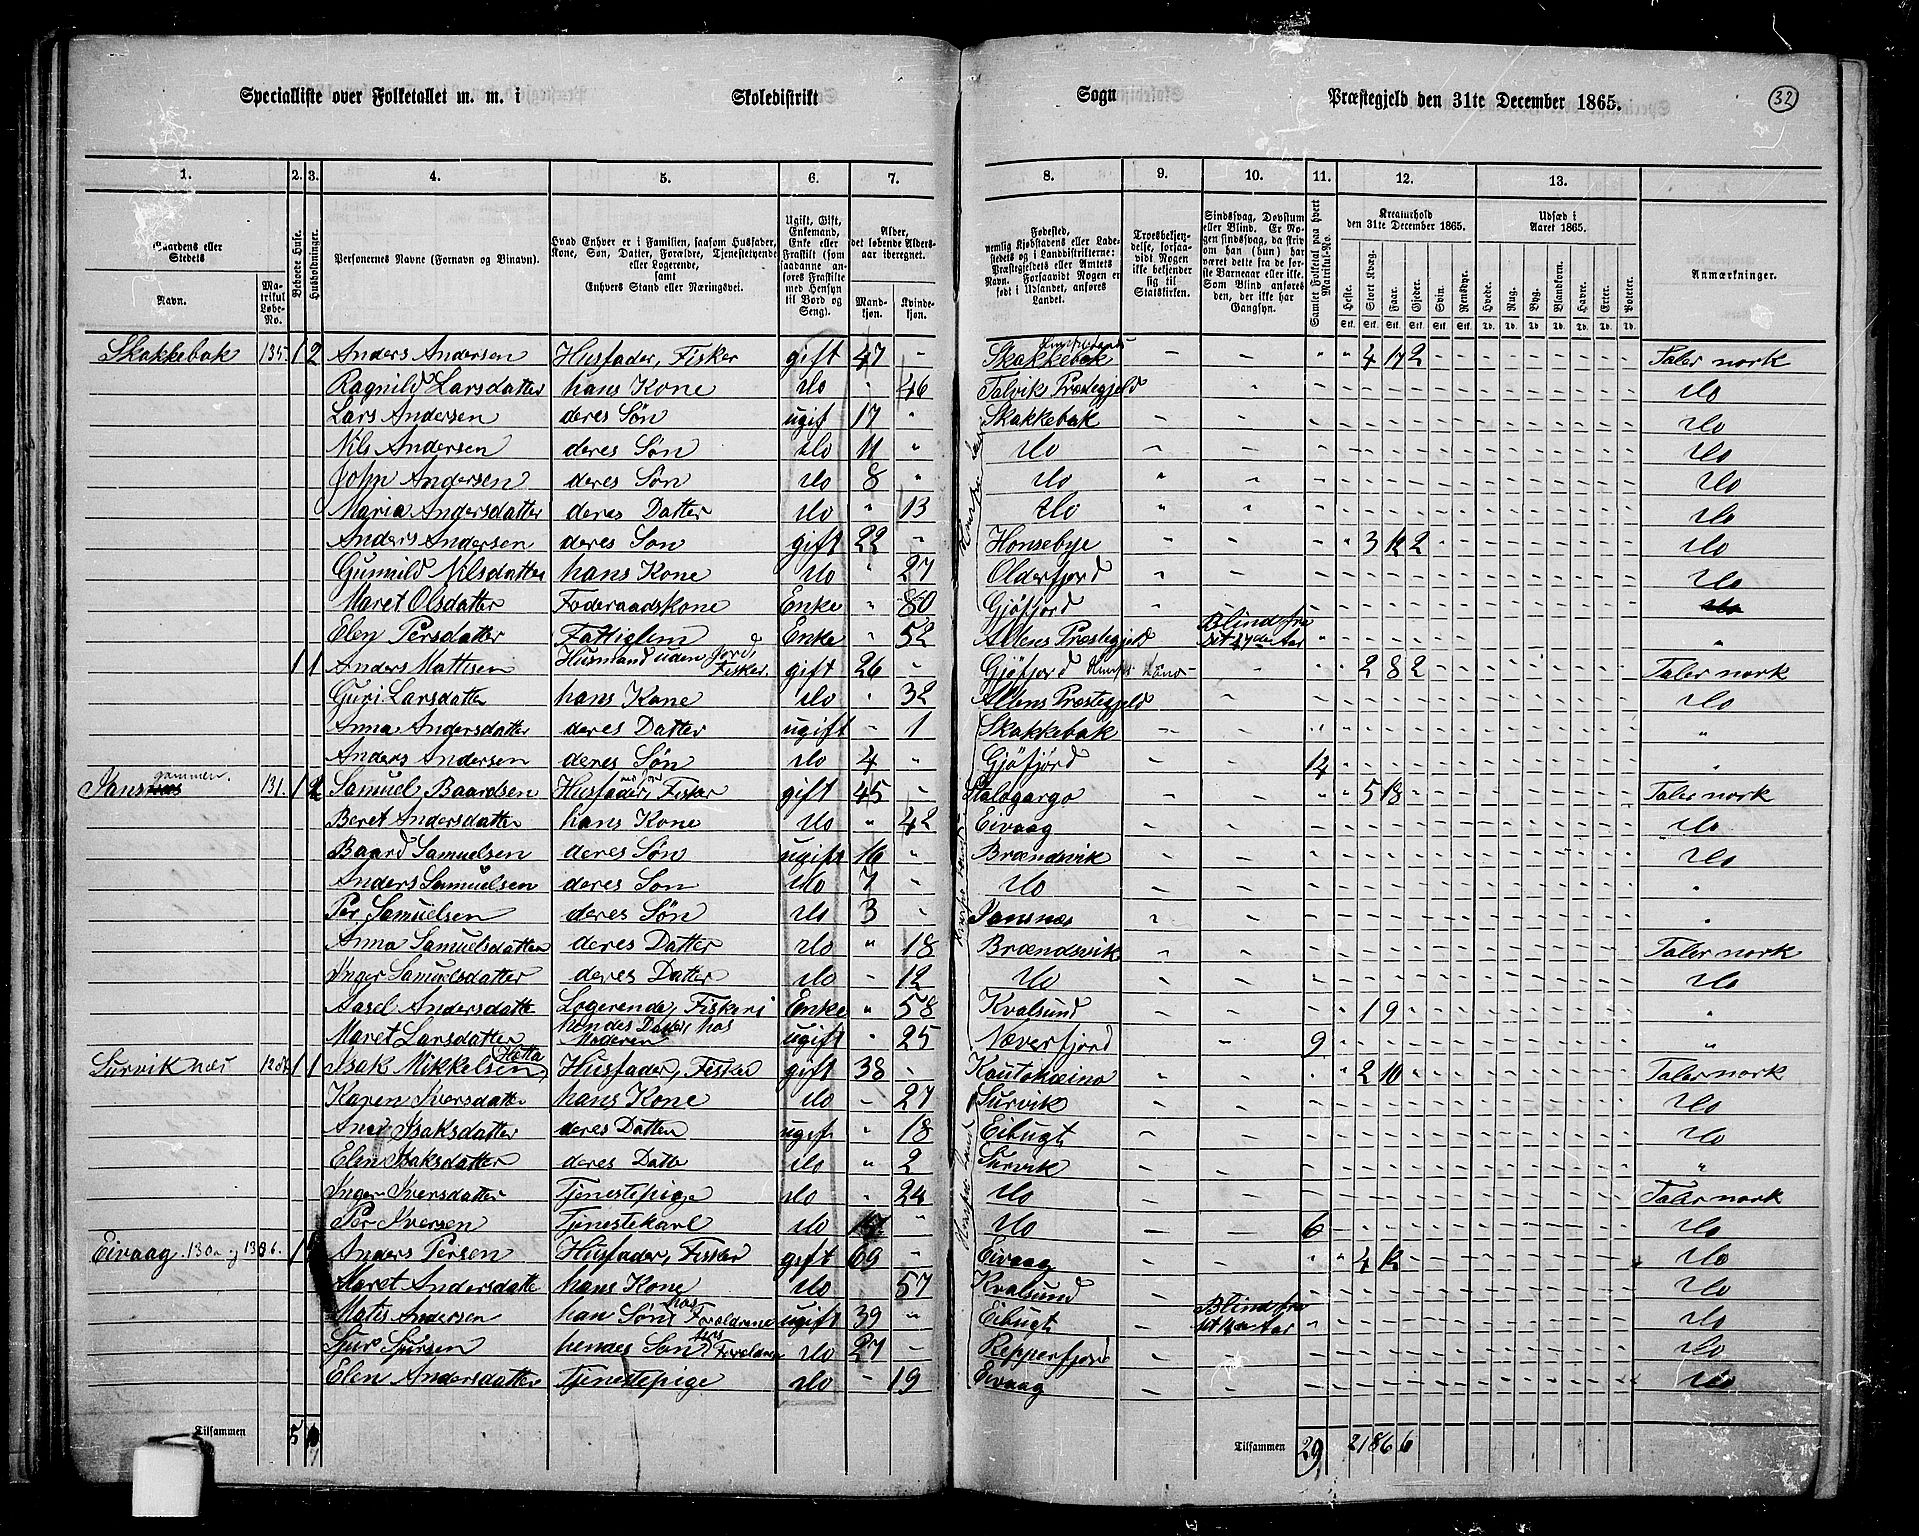 Specialliste over Folketallet m. m. i Skoledistrikt Sogn Præstegjeld den 31te December 1865. 32
1. 2. 3. 4. 5. 6. 7. 8. 9. 10. 11. 12. 13.
Gaardens eller Stedets Navn. Matrikul Løbe-No. Beboede Huse. Husholdninger. Personernes Navne (Fornavn og Binavn). Hvad Enhver er i Familien, saasom Husfader, Kone, Søn, Datter, Forældre, Tjenestetyende eller Logerende, samt Enhvers Stand eller Næringsvei. Ugift, Gift, Enkemand, Enke eller Fraskilt (som saadanne anføres Fraskilte med Hensyn til Bord og Seng). Alder, det løbende Alders-aar iberegnet. Mandkjøn. Kvindekjøn.
Fødested, nemlig Kjøbstadens eller Ladestedets og i Landdistrikterne: Præstegjeldets eller Amtets Navn. Forsaavidt Nogen er født i Udlandet, anføres Landet. Troesbekjendelse, forsaavidt Nogen ikke bekjender sig til Statskirken. Sindssvag, Døvstum eller Blind. Er Nogen sindssvag, da skriv om han (hun) har været dette fra de første Barneaar eller ikke. Som Blind anføres den, der ikke har Gangsyn. Samlet Folketal paa hvert Matrikul-No. Kreaturhold den 31te December 1865. Heste. Stort Kvæg. Faar. Gjeder. Svin. Rensdyr. Udsæd i Aaret 1865. Hvede. Rug. Byg. Blandkorn. Havre. Erter. Poteter. Anmærkninger.
Skakkebak 135 1 2 Anders Andersen Husfader, Fisker gift 47 - Skakkebak 4 17 2 Taler norsk
Ragnild Larsdatter hans Kone do - 46 Talvik Præstegjeld do
Lars Andersen deres Søn ugif 17 " Skakkebak do
Nils Andersen deres Søn do 11 " do do
John Andersen deres Søn do 8 " do do
Maria Andersdatter deres Datter do " 13 do do
Anders Andersen deres Søn gift 22 - Honsebye 3 12 2 do
Gunnild Nilsdatter hans Kone do " 27 Olderfjord do
Maret Olsdatter Foderaadskone Enke " 80 Gjøfjord do
Elen Persdatter Fattiglem Enke " 52 Altens Præstegjeld Blind fra "
1 1 Anders Mattisen Husmand uden Jord, Fisker. gift 26 - Gjøfjord 2 8 2 Taler norsk
Guri Larsdatter hans Kone do - 32 Altens Præstegjeld do
Anna Andersdatter deres Datter ugift - 1 Skakkebak "
Anders Andersen deres Søn do 4 " Gjøfjord 14 "
Jansnæs gammen. 131. 1 2 Samuel Baardsen Husfader, Fisker gift 45 - Stalogargo 5 18 Taler norsk
Beret Andersdatter hans Kone do " 42 Eivaag do
Baard Samuelsen deres Søn ugift 16 " Brændsvik do
Anders Samuelsen deres Søn do 7 - do "
Per Samuelsen deres Søn do 3 - Jansnæs "
Anna Samuelsdatter deres Datter do " 18 Brændsvik Taler norsk
Inger Samuelsdatter deres Datter do - 12 do do
Aasel Andersdatter Logerende, Fiskeri Enke " 58 Kvalsund 1 9 "
Maret Larsdatter hendes Datter, hos Moderen ugift - 25 Næverfjord 9 "
Surviknæs 128 1 1 Isak Mikkelsen Hætta Husfader, Fisker gift 38 - Kautokeino 2 10 Taler norsk
Karen Iversdatter hans Kone do - 27 Survik do
Isaksdatter deres Datter ugift " 18 Eibugt do
Elen Isaksdatter deres Datte do " 2 Survik "
Inger Iversdatter Tjenestepige do " 24 do Taler norsk
Per Iversen Tjenestekarl do " do 6 do
Eivaag. 1 Anders Persen Husfader, Fisker gift 69 " Eivaag 4 12 do
Maret Andersdatte hans Kone do " 57 Kvalsund do
Matis Andersen han Søn, hos Forældrene ugift 39 " Eibugt Blind fra do
Sjur Sjursen hendes Søn, Forældrene do 27 - Repperfjord do
Elen Andersdatter Tjenestepige do - 19 Eivaag do
Tilsammen 5 7 Tilsammen 29 21 86 6